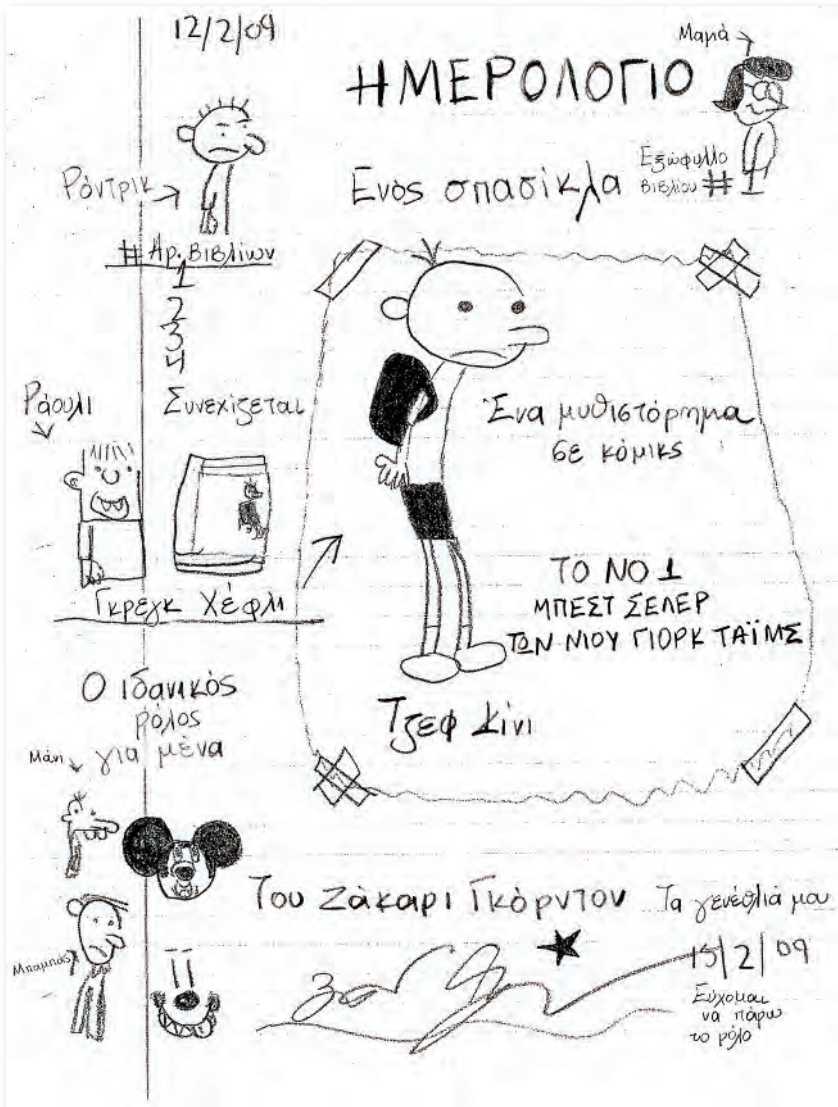 12/2/09
Μαμά
ΗΜΕΡΟΛΟΓΙΟ
Ρόντρικ
Ενός σπασίκλα
Εξώφυλλο
Βιβλίου #
# Αρ. Βιβλίων
1
2
3
4
Συνεχίζεται
Ράουλι
Ένα μυθιστόρημα
σε κόμικς
ΤΟ ΝΟ 1
ΜΠΕΣΤ ΣΕΛΕΡ
ΤΩΝ ΝΙΟΥ ΓΙΟΡΚ ΤΑΪΜΣ
Γκρεγκ Χέφλι
Τζεφ Κίνι
Ο ιδανικός
ρόλος
για μένα
Μάνι
Μπαμπάς
Του Ζάκαρι Γκόρντον
Τα γενέθλιά μου
15/2/09
Εύχομαι
να πάρω
το ρόλο